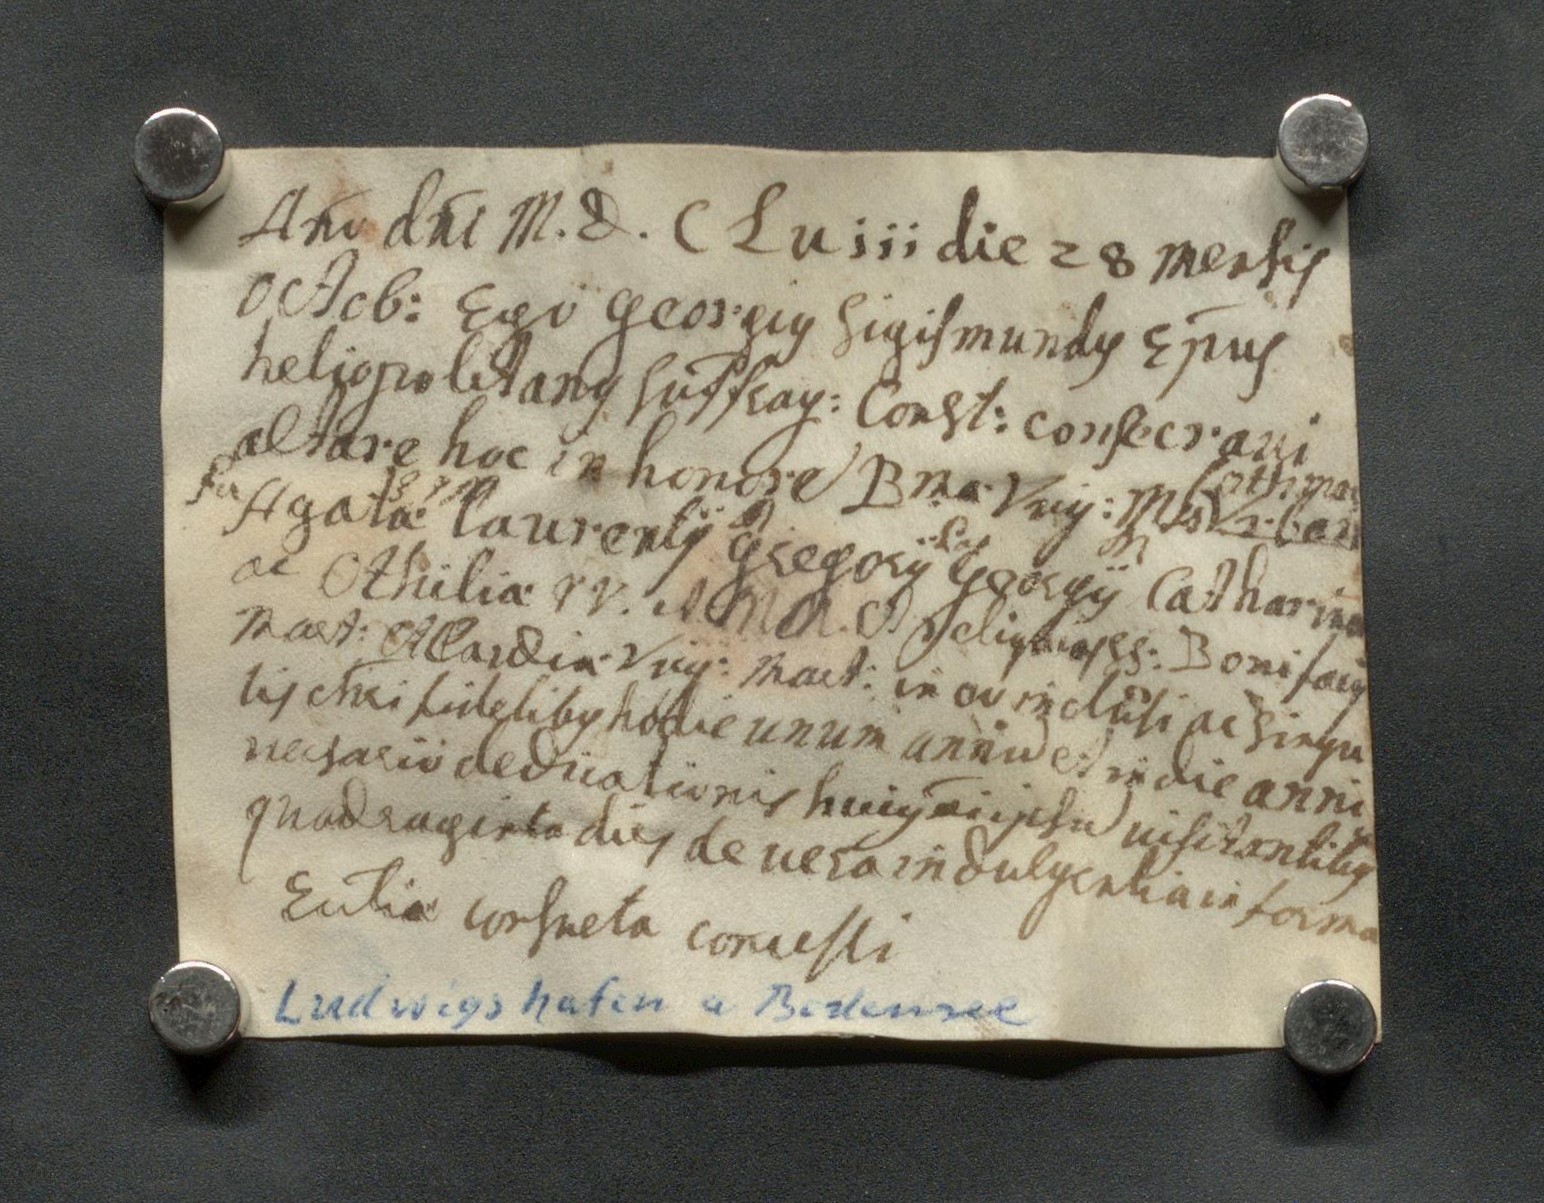 Año dñi M.D.C Luiii die 28 mensis
octob: Ego Georgiq Sigismundq Epus
heliopolitanq Suffrag: Const: consecravi
altare hoc in honore B Mar. Virg:
Agata Laurentij Gregorij Georgij Catharina
ac Othilia vv. et reliquias ss: Bonifacij
mart: Virg: mart: in eo inclusi ac singu
lis chri fidelibq hodie unum annū et in die anni
versario dedicationis huiq ipsū visitantibq
quadraginta dies de vera indulgentia in forma
Eccliæ consueta concessi
Ludwigshafen a Bodensee